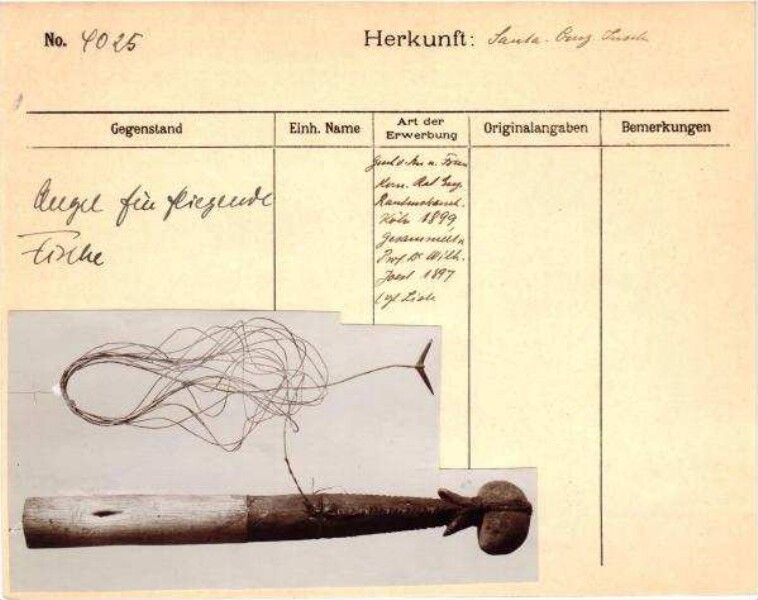 No. 4025
Herkunft: Santa-Cruz Inseln
Gegenstand
Einh. Name
Art der Erwerbung
Originalangaben
Bemerkungen
Angel für fliegende
Fische
Rautenstrauch.
Köln 1899
Gesammelt v.
Prof Dr Wilh.
Joest 1897